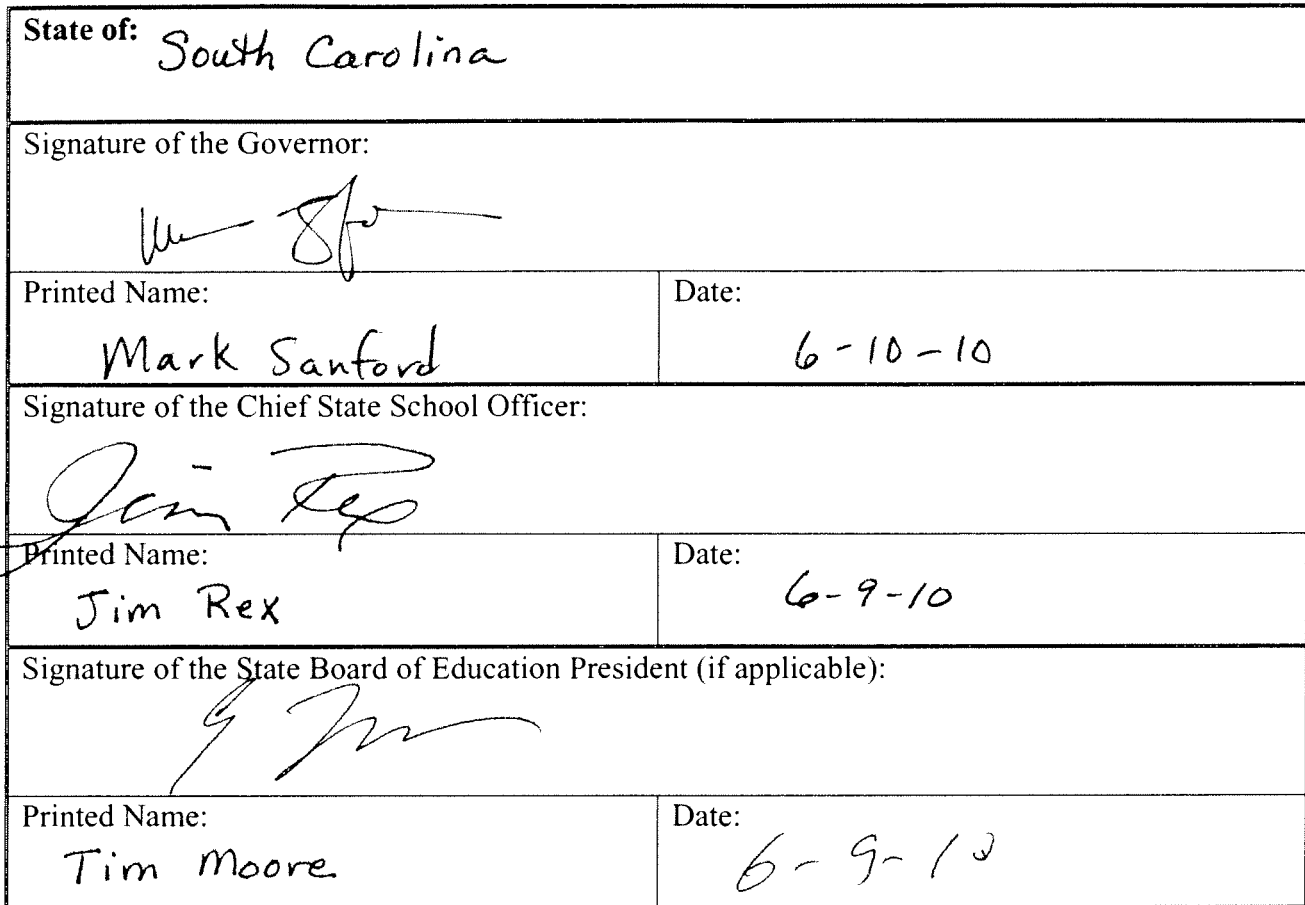 State of: South Carolina
Signature of the Governor:
Printed Name:
Date:
Mark Sanford
6-10-10
Signature of the Chief State School Officer:
Jim Rex
Printed Name:
Date:
Jim Rex
6-9-10
Signature of the State Board of Education President (if applicable):
Printed Name:
Date:
Tim Moore
6-9-10